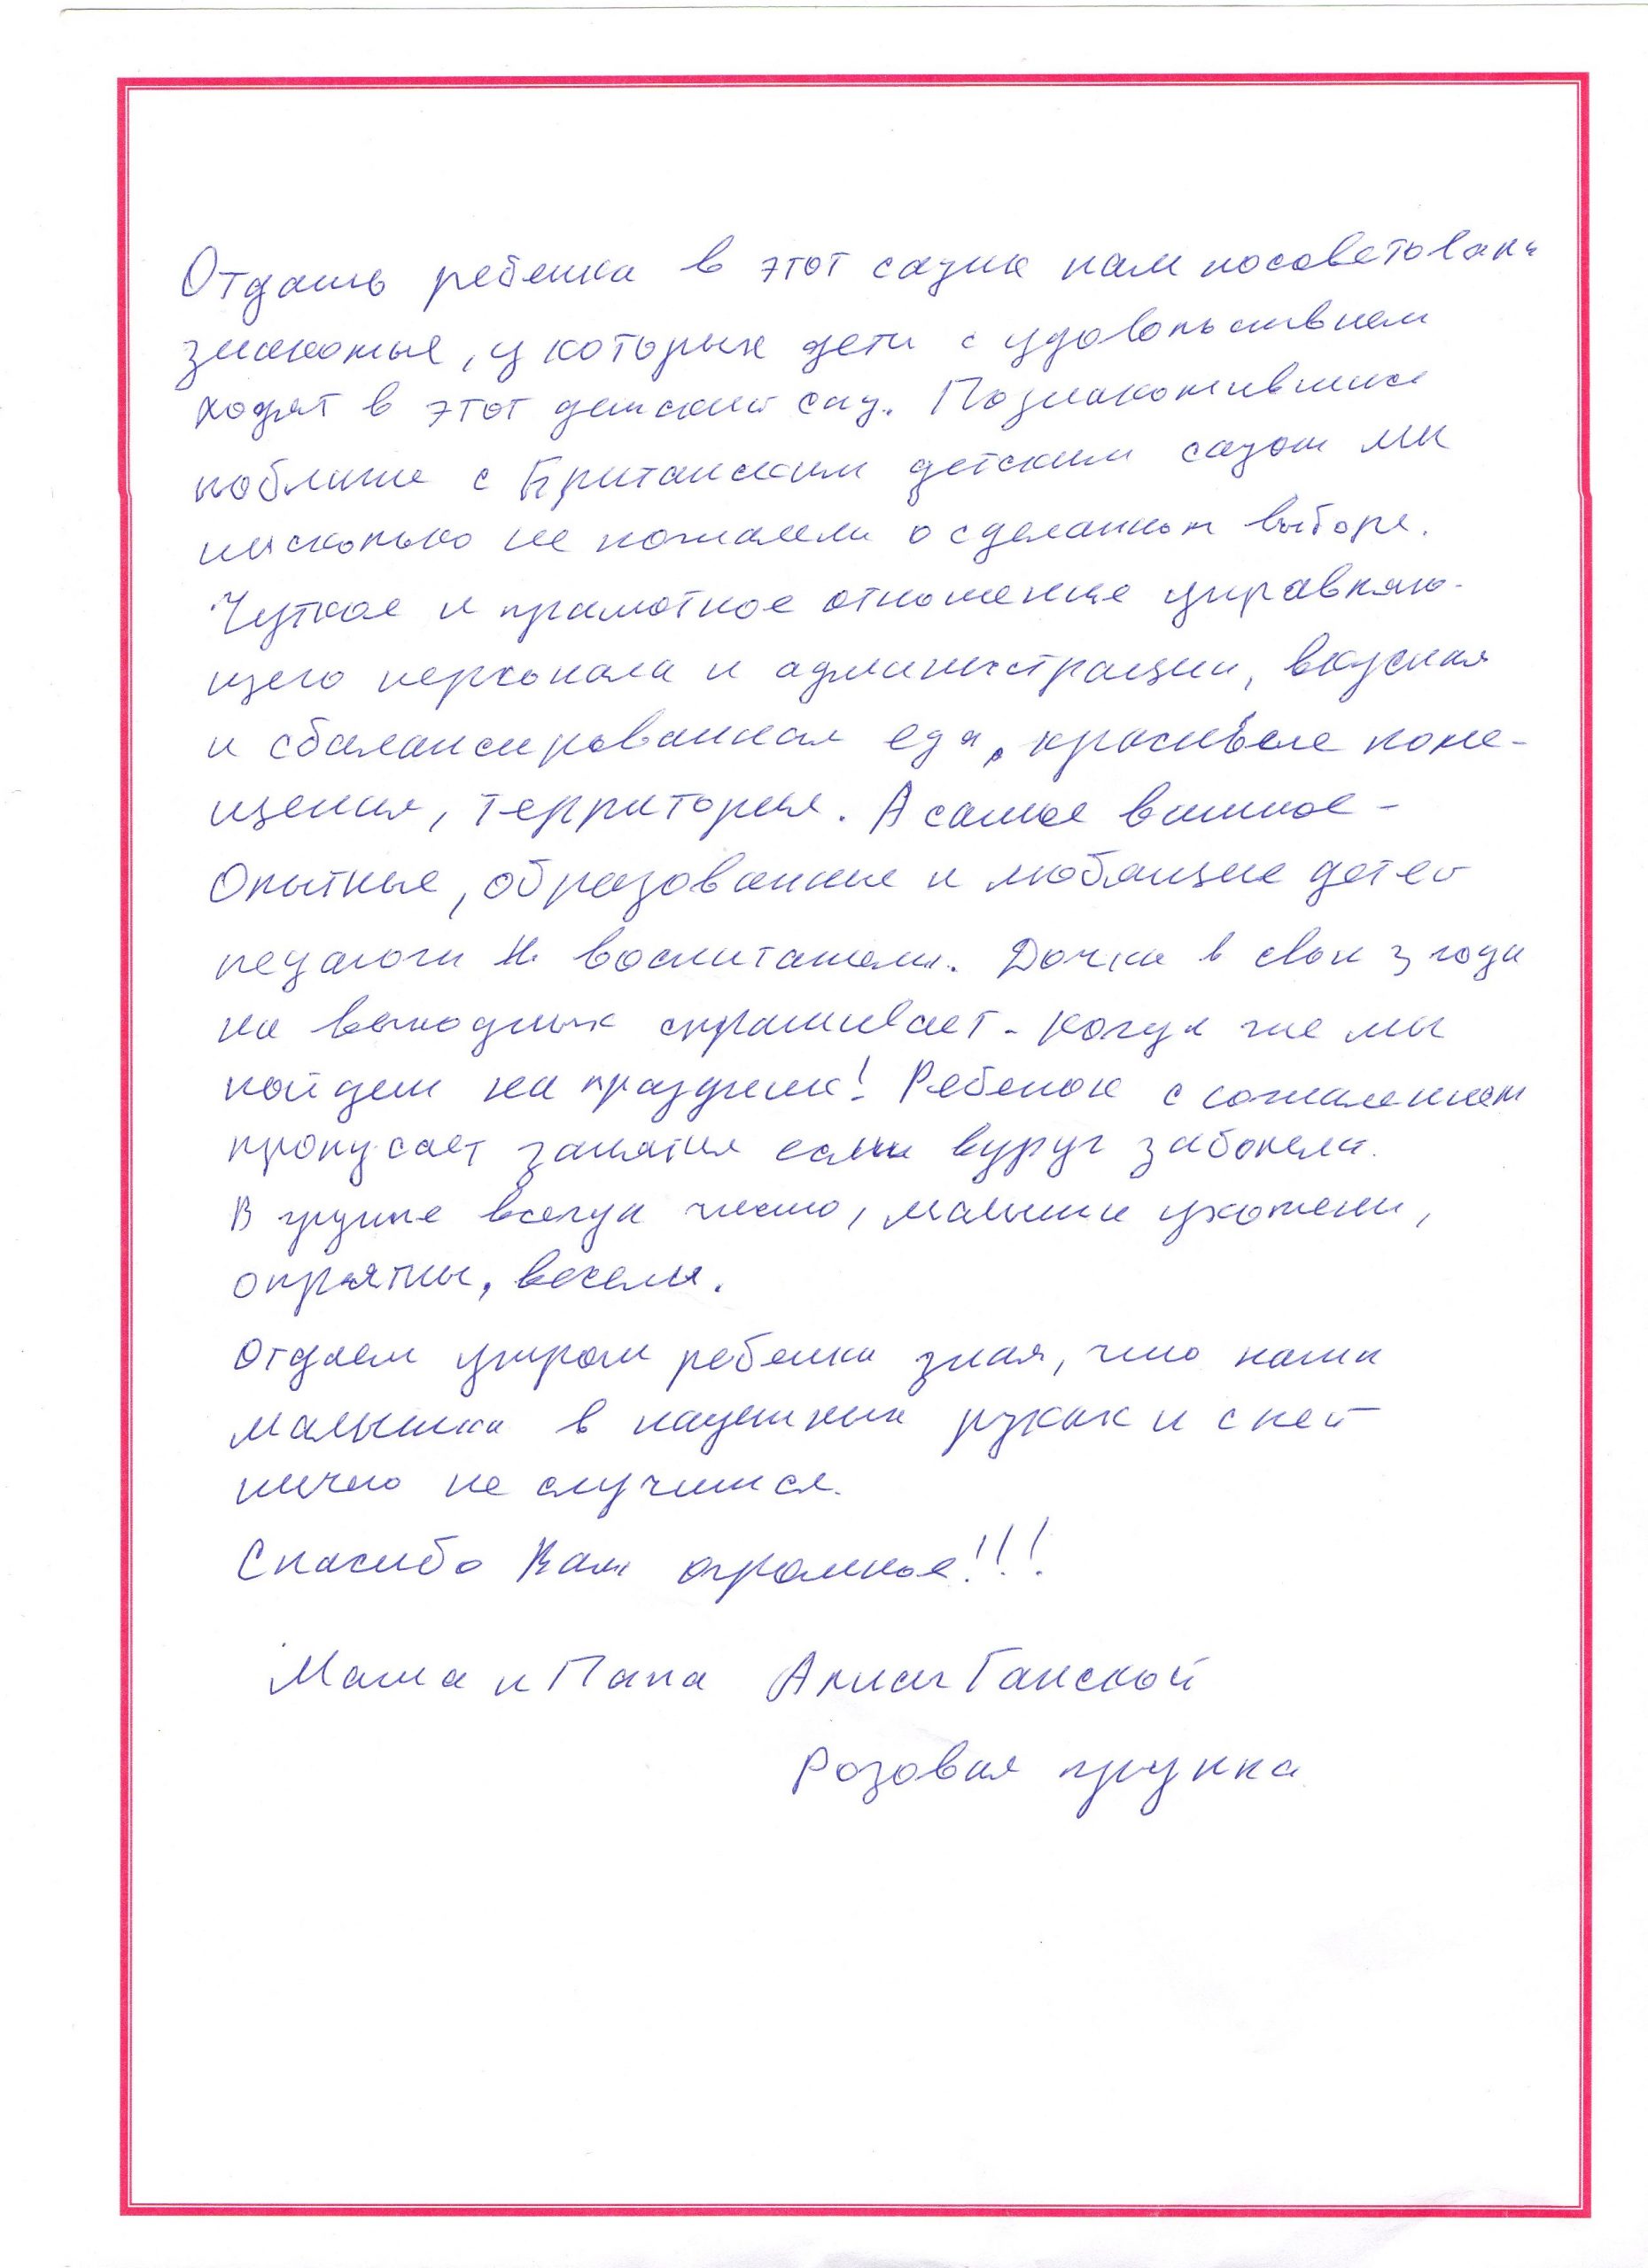 Отдать ребенка в этот садик нам посоветовали
знакомые, у которых дети с удовольствием
ходят в этот детский сад. Познакомившись
поближе с Британским детским садом мы
нисколько не пожалели о сделанном выборе.
Чуткое и грамотное отношение управляю-
щего персонала и администрации, вкусная
и сбалансированная еда, красивые поме-
щения, территория. А самое важное -
Опытные, образованные и любящие детей
педагоги и воспитатели. Дочка в свои 3 года
на выходных спрашивает - когда же мы
пойдем на праздник! Ребенок с сожалением
пропускает занятия если вдруг заболели.
В группе всегда чисто, малыши ухожены,
опрятны, веселы.
Отдаем утром ребенка зная, что наша
малышка в надежных руках и с ней
ничего не случится.
Спасибо Вам огромное!!!
Мама и Папа Алисы Ганской
Розовая группа